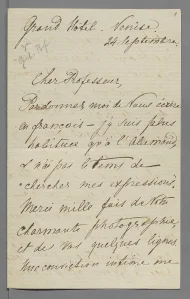 Grand Hotel. Venise
24 Septembre.
Cher Professeur,
Pardonnez moi de Vous écrire
en français – j'y suis plus
habituée qu'à l'allemand,
& n'ai pas le tems de
chercher mes expressions.
Merci mille fois de Votre
charmante photographie,
et de vos quelques lignes.
Une conviction intime me